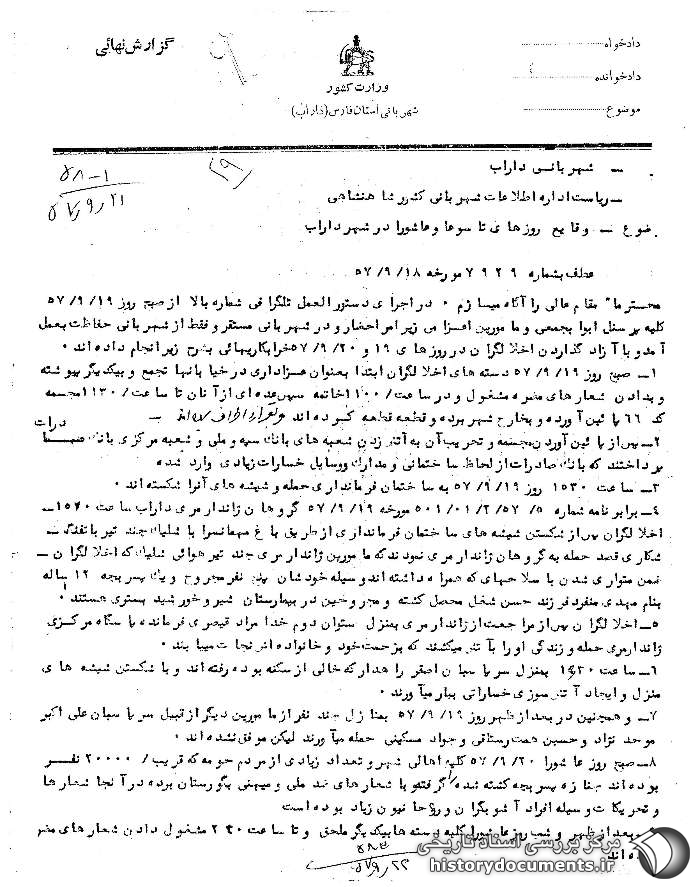 گزارش نهائی
دادخواه
دادخوانده
موضوع
وزارت کشور
شهربانی استان فارس (داراب)
۵۸-۱
۵۷/۹/۲۱
ـ شهربانی داراب
ـ ریاست اداره اطلاعات شهربانی کشور شاهنشاهی
ضوع ـ وقایع روزهای تاسوعا و عاشورا در شهر داراب
عطف بشماره ۷۹۲۹ مورخه ۵۷/۹/۱۸
محترما" مقام عالی را آگاه میسازم ۰ در اجرای دستورالعمل تلگرافی شماره بالا از صبح روز ۵۷/۹/۱۹
کلیه پرسنل ابوابجمعی و مامورین اعزامی زیر امر احضار و در شهربانی مستقر و فقط از شهربانی حفاظت بعمل
آمد و با آزاد گذاردن اخلالگران در روزهای ۱۹ و ۵۷/۹/۲۰ خرابکاریهائی بشرح زیر انجام داده اند ۰
۱ـ صبح روز ۵۷/۹/۱۹ دسته های اخلالگران ابتدا بعنوان عزاداری در خیابانها تجمع و بیکدیگر پیوسته
و بدادن شعارهای مضره مشغول و در ساعت/۱۱۰۰ خاتمه سپس عده ای از آنان تا ساعت/۱۱۳۰ مجسمه
که ۶۶ پائین آورده و بخارج شهر برده و قطعه قطعه کرده اند
۲ـ پس از پائین آوردن مجسمه و تخریب آن به آتش زدن شعبه های بانک سپه و ملی و شعبه مرکزی بانک صادرات
پرداختند که بانک صادرات از لحاظ ساختمانی و مدارک و وسایل خسارات زیادی وارد شده
۳ـ ساعت ۱۵۳۰ روز ۵۷/۹/۱۹ به ساختمان فرمانداری حمله و شیشه های آنرا شکسته اند ۰
۴ـ برابر نامه شماره ۵/۵۷/۲/۰۱/۵۰۱ مورخه ۵۷/۹/۱۹ گروهان ژاندارمری داراب ساعت ۱۵۴۰ـ
اخلالگران پس از شکستن شیشه های ساختمان فرمانداری از طریق باغ مهمانسرا با شلیک چند تیر با تفنگ ـ
شکاری قصد حمله به گروهان ژاندارمری نمودند که مامورین ژاندارمری چند تیر هوائی شلیک که اخلالگران ـ
ضمن متواری شدن با سلاحهای که همراه داشته اند وسیله خودشان پنج نفر مجروح و یک پسر بچه ۱۲ ساله
بنام مهدی منفرد فرزند حسن شغل محصل کشته و مجروحین در بیمارستان شیر و خورشید بستری هستند ۰
۵ـ اخلالگران پس از مراجعت از ژاندارمری بمنزل ستوان دوم خدامراد قیصری فرمانده پاسگاه مرکزی
ژاندارمری حمله و زندگی او را بآتش میکشند که بزحمت خود و خانواده اش نجات مییابند ۰
۶ـ ساعت ۱۶۳۰ بمنزل سرپاسبان اصغر راهدار که خالی از سکنه بوده رفته اند و با شکستن شیشه های
منزل و ایجاد آتش سوزی خساراتی ببار میآورند ۰
۷ـ و همچنین در بعد از ظهر روز ۵۷/۹/۱۹ بمنازل چند نفر از مامورین دیگر از قبیل سرپاسبان علی اکبر
موحد نژاد و حسین همت رستاقی و جواد مسکینی حمله میآورند لیکن موفق نشده اند ۰
۸ـ صبح روز عاشورا ۵۷/۹/۲۰ کلیه اهالی شهر و تعداد زیادی از مردم حومه که قریب /۲۰۰۰۰ نفر
بوده اند جنازه پسر بچه کشته شده را گرفته و با شعارهای ضد ملی و میهنی بگورستان برده در آنجا شعارها
و تحریکات وسیله افراد آشوبگران و روحانیون زیاد بوده است
بعد از ظهر و شب روز عاشورا کلیه دسته ها بیکدیگر ملحق و تا ساعت ۲۲۳۰ مشغول دادن شعارهای مضره
ده اند
مرکز بررسی اسناد تاریخی
historydocuments.ir